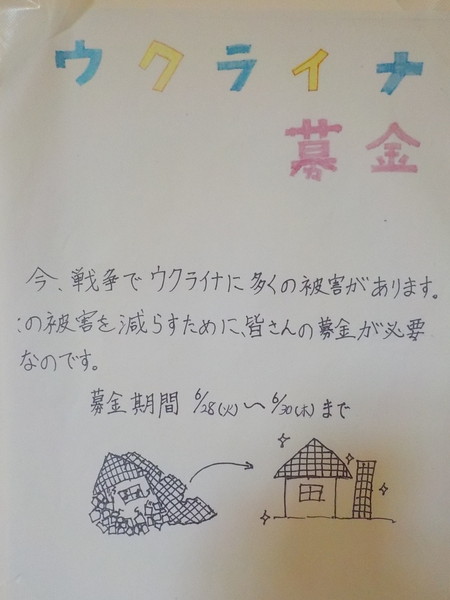 ウクライナ
募金
今、戦争でウクライナに多くの被害があります。
この被害を減らすために、皆さんの募金が必要
なのです。
募金期間 6/28(火)〜6/30(木)まで